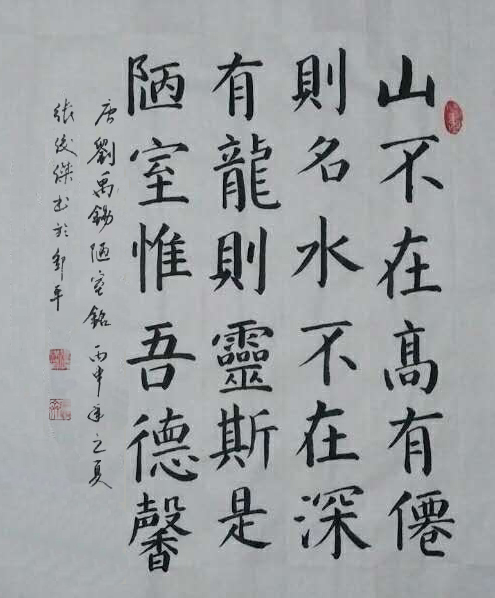 山不在高有僊
則名水不在深
有龍則靈斯是
陋室惟吾德馨
唐劉禹錫陋室銘丙申年之夏
張俊傑書於鄒平